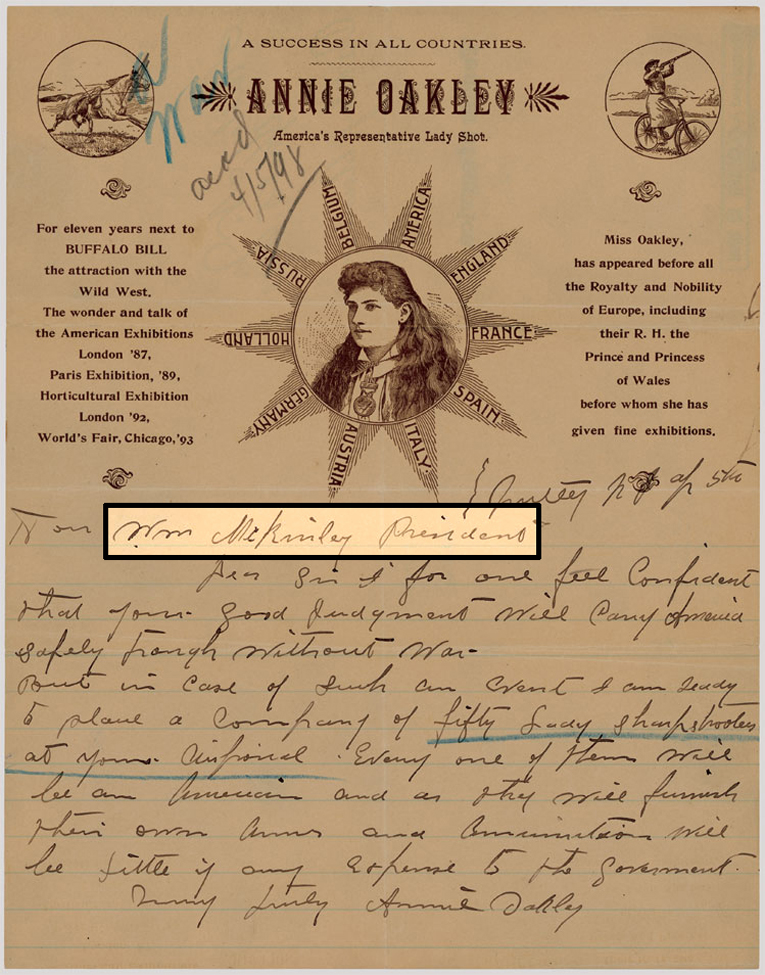 A SUCCESS IN ALL COUNTRIES.
ANNIE OAKLEY
America's Representative Lady Shot.
War
ackd
4/5/98
For eleven years next to
BUFFALO BILL
the attraction with the
Wild West.
The wonder and talk of
the American Exhibitions
London '87,
Paris Exhibition, '89,
Horticultural Exhibition
London '92,
World's Fair, Chicago, '93
BELGIUM
AMERICA
ENGLAND
FRANCE
SPAIN
ITALY.
AUSTRIA
GERMANY
HOLLAND
RUSSIA
Miss Oakley,
has appeared before all
the Royalty and Nobility
of Europe, including
their R. H. the
Prince and Princess
of Wales
before whom she has
given fine exhibitions.
Nutley NJ ap 5th
Hon Wm McKinley President
Dear Sir I for one feel Confident
that your good judgment will carry America
safely trough without War-
But in case of such an event I am ready
to place a Company of fifty lady sharpshooters
at your disposal. Every one of them will
be an American and as they will furnish
their own Arms and Ammunition will
be little if any expense to the goverment.
Very truly Annie Oakley